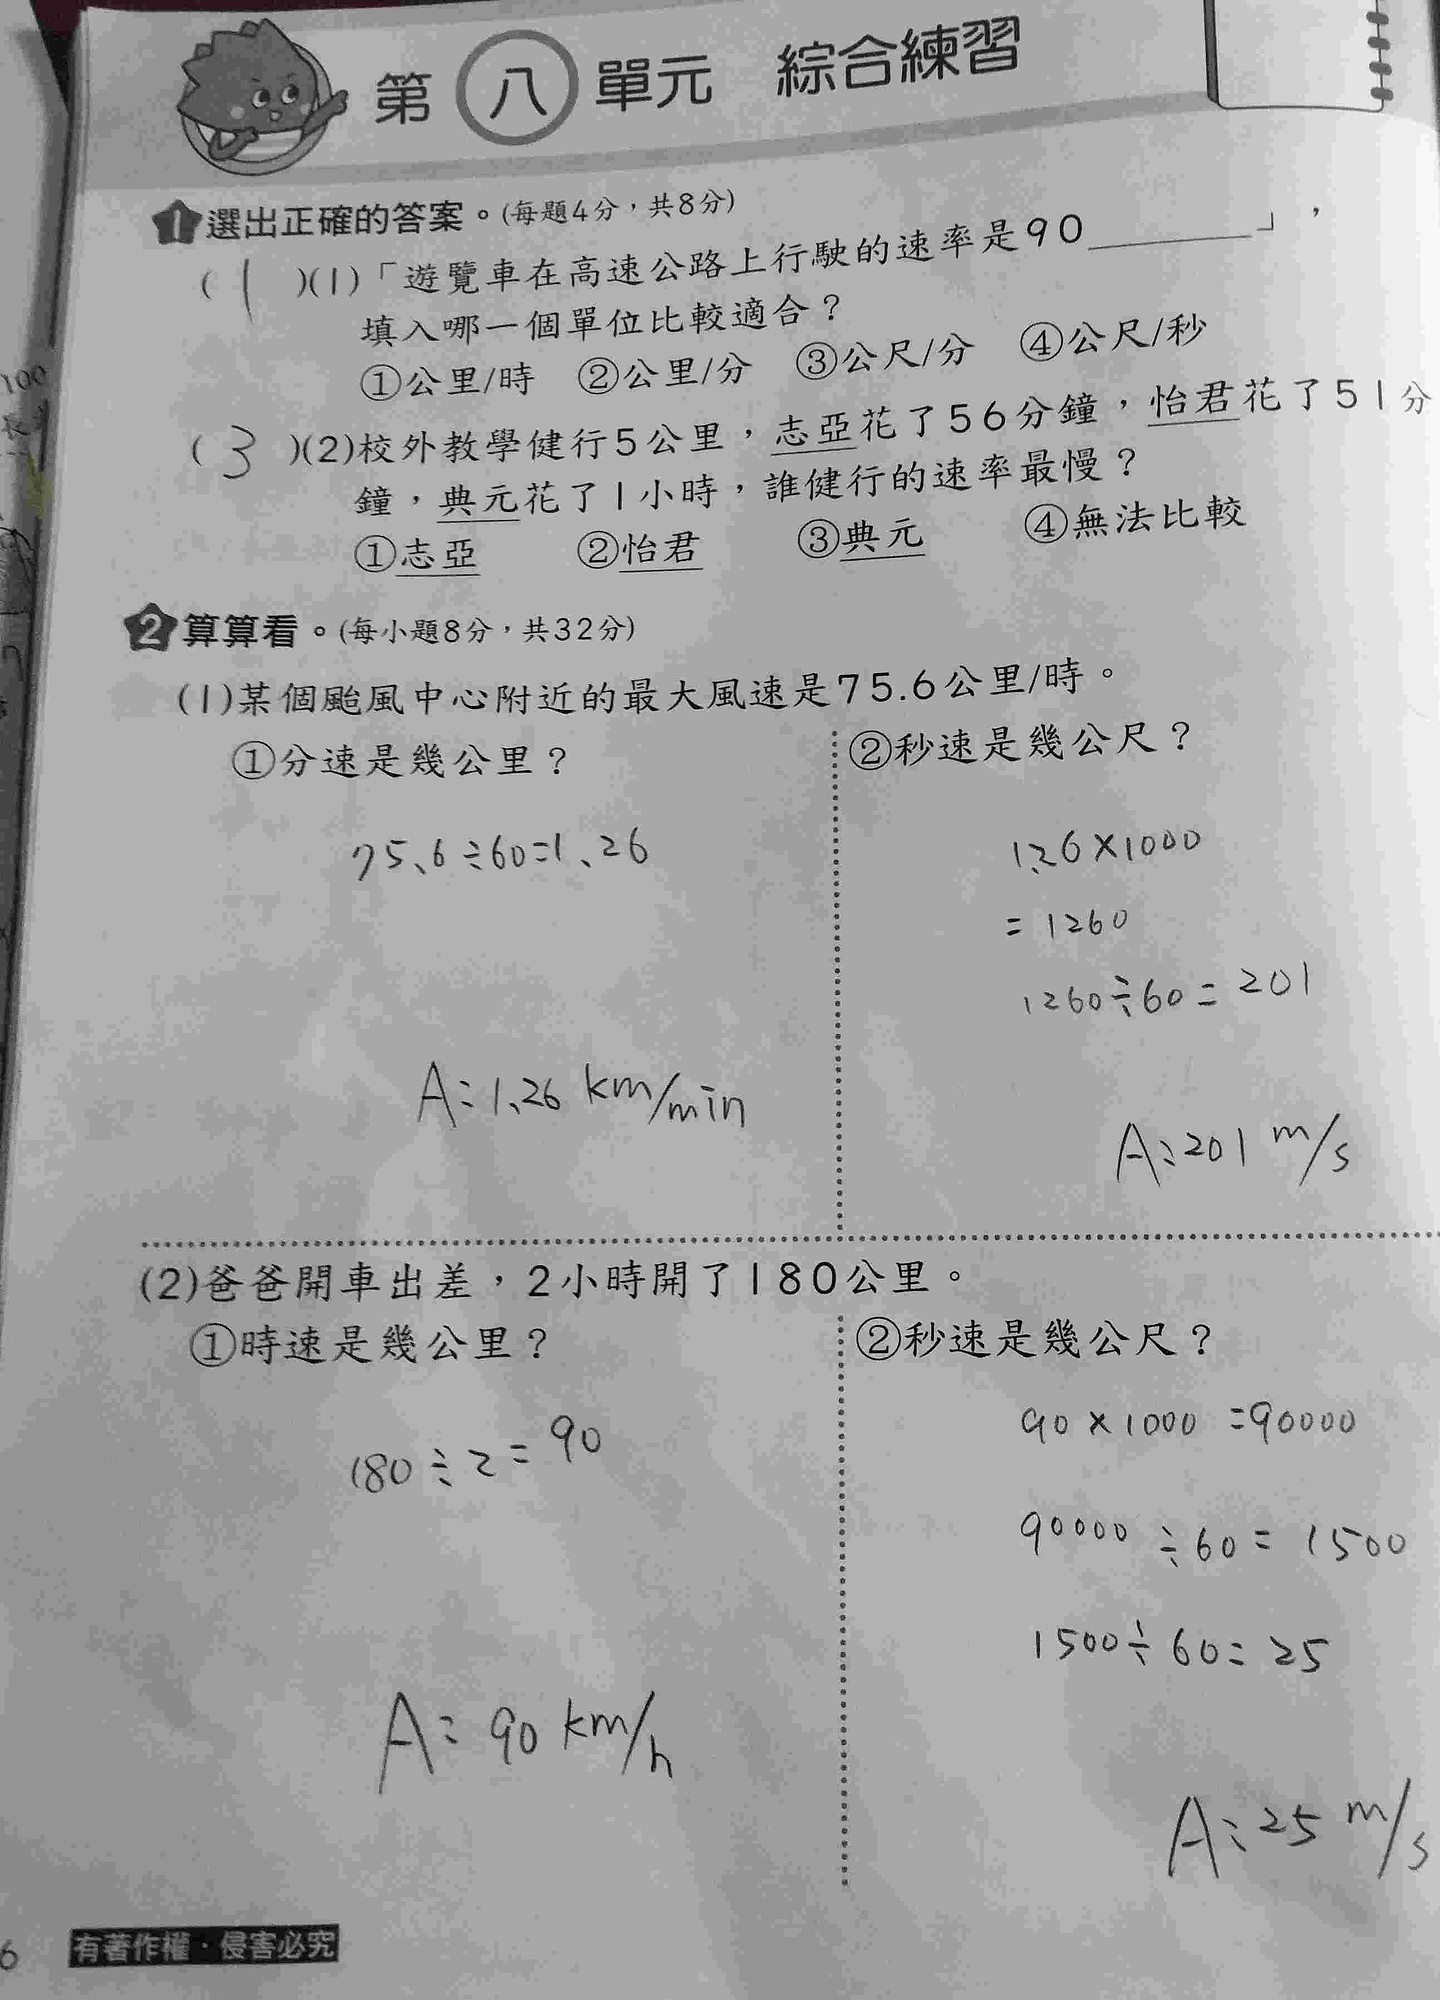 第八單元 綜合練習
1 選出正確的答案。(每題4分，共8分)
( 1 )(1)「遊覽車在高速公路上行駛的速率是90______」，
填入哪一個單位比較適合？
①公里/時 ②公里/分 ③公尺/分 ④公尺/秒
( 3 )(2)校外教學健行5公里，志亞花了56分鐘，怡君花了51分
鐘，典元花了1小時，誰健行的速率最慢？
①志亞 ②怡君 ③典元 ④無法比較
2 算算看。(每小題8分，共32分)
(1)某個颱風中心附近的最大風速是75.6公里/時。
①分速是幾公里？
75.6÷60=1.26
A:1.26 km/min
②秒速是幾公尺？
1.26×1000
=1260
1260÷60=201
A:201 m/s
(2)爸爸開車出差，2小時開了180公里。
①時速是幾公里？
180÷2=90
A:90 km/h
②秒速是幾公尺？
90×1000=90000
90000÷60=1500
1500÷60=25
A:25 m/s
6 有著作權·侵害必究
100